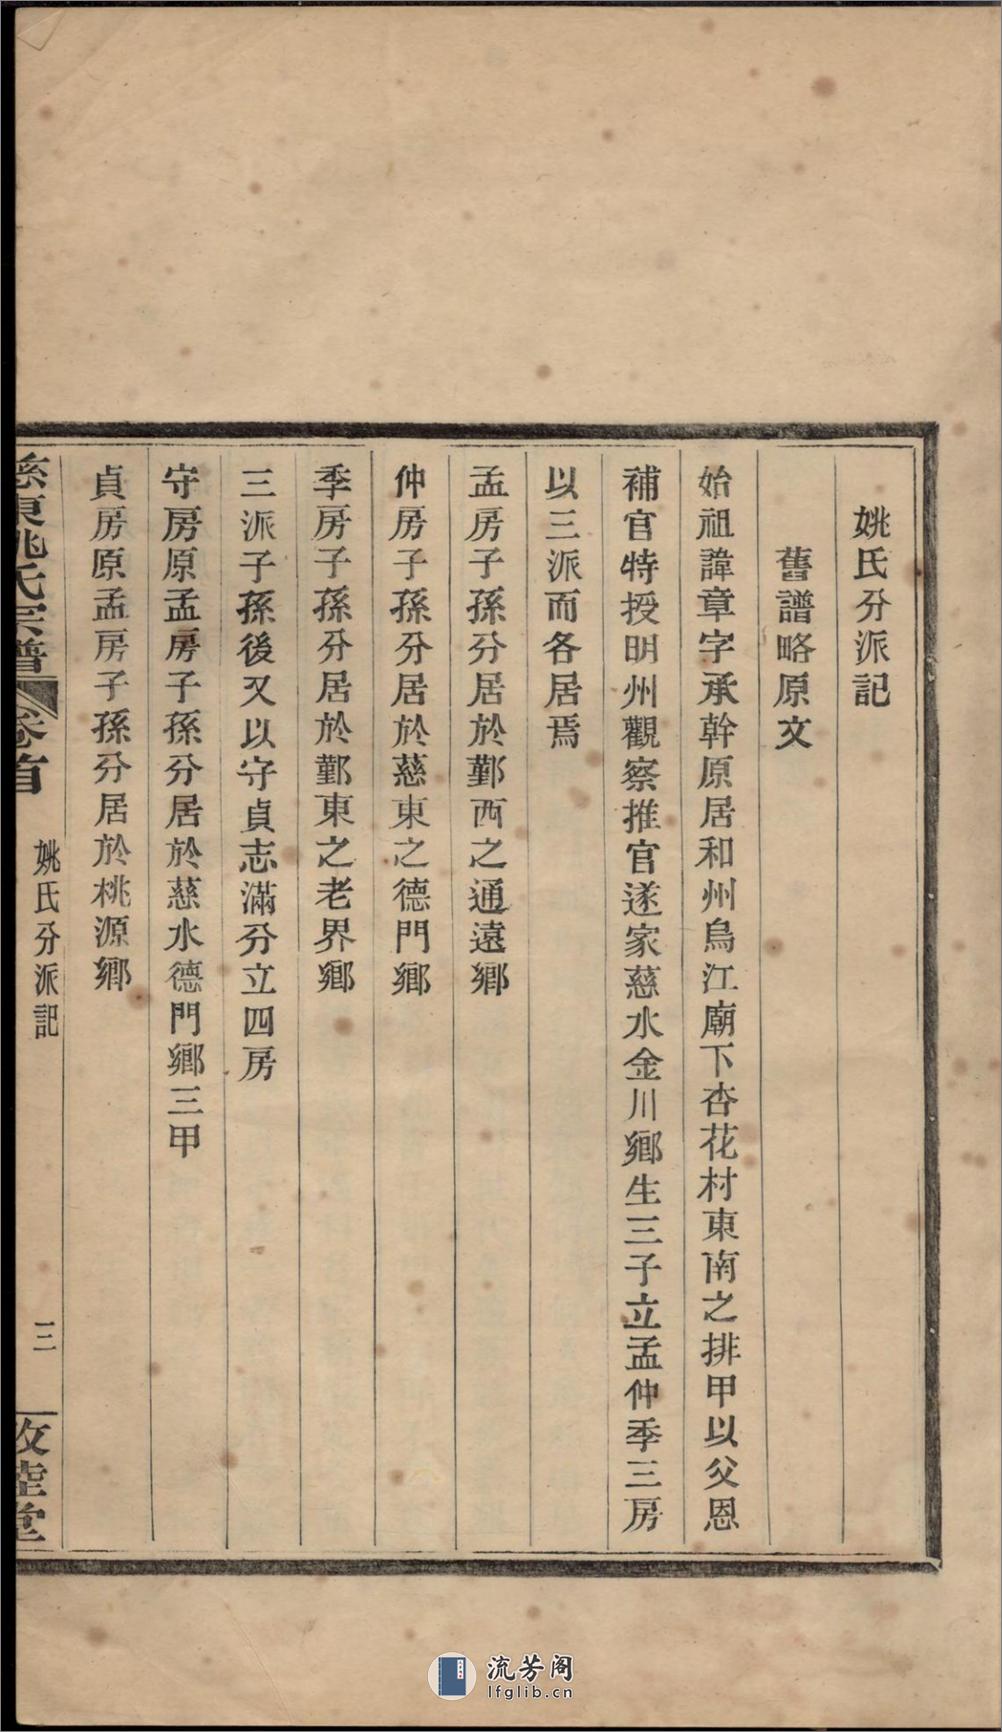 姚氏分派記
舊譜略原文
始祖諱章字承幹原居和州烏江廟下杏花村東南之排甲以父恩
補官特授明州觀察推官遂家慈水金川鄉生三子立孟仲季三房
以三派而各居焉
孟房子孫分居於鄞西之通遠鄉
仲房子孫分居於慈東之德門鄉
季房子孫分居於鄞東之老界鄉
三派子孫後又以守貞志滿分立四房
守房原孟房子孫分居於慈水德門鄉三甲
貞房原孟房子孫分居於桃源鄉
慈東姚氏宗譜 卷首 姚氏分派記 三 敦睦堂
流芳阁
lfglib.cn